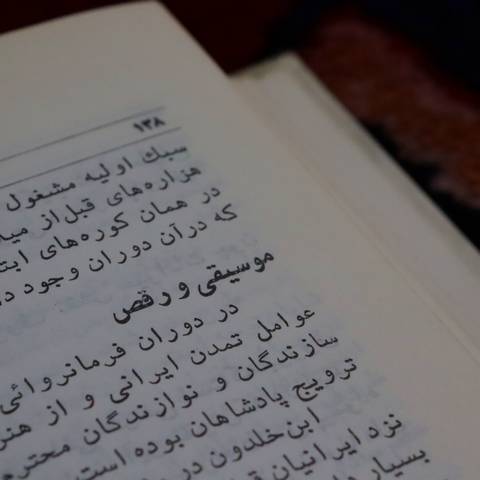 ۱۳۸
سبك اولیه مشغول
هزاره‌های قبل‌از
در همان کوره‌های
که درآن دوران وجود
موسیقی و رقص
در دوران فرمانروائی
عوامل تمدن ایرانی و از
سازندگان و نوازندگان
ترویج پادشاهان بوده است
ابن‌خلدون در
نزد ایرانیان